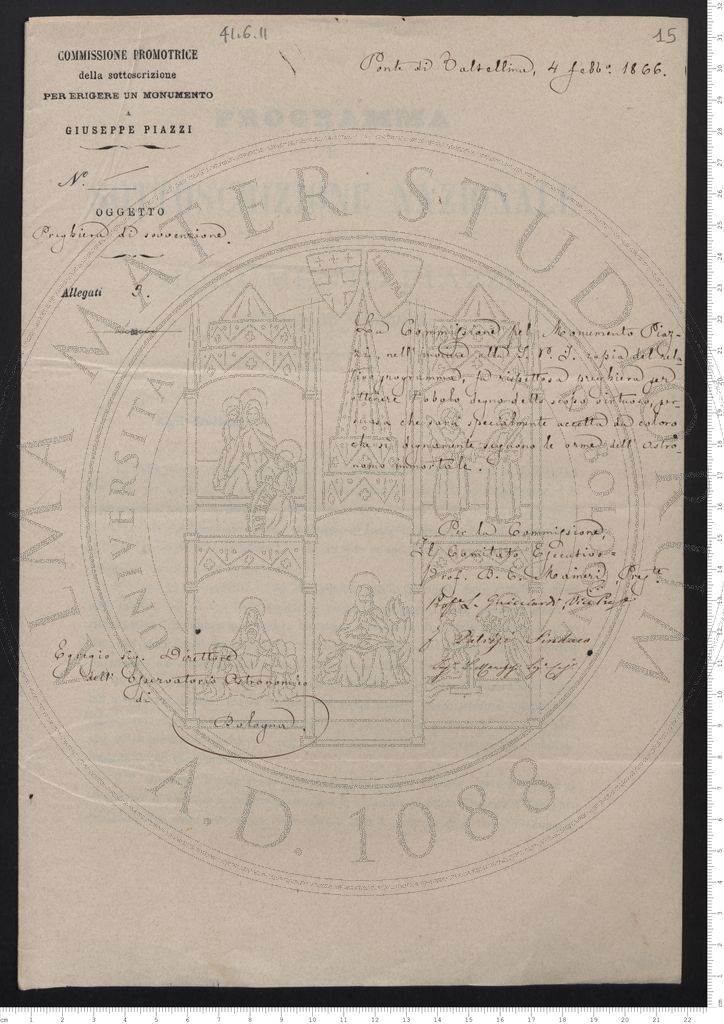 41.6.11
15
COMMISSIONE PROMOTRICE
della sottoscrizione
PER ERIGERE UN MONUMENTO
A
GIUSEPPE PIAZZI
Ponte di Valtellina, 4 febb.o 1866.
N.o
OGGETTO
Preghiera di sovvenzione.
Allegati 3.
La Commissione pel Monumento Piaz-
zi, nell'inviare alla S. V. I. copia del rela-
tivo programma, fa rispettosa preghiera per
ottenere l'obolo degno dello scopo virtuoso, per-
suasa che sarà specialmente accetta da coloro
che sì degnamente seguono le orme dell'Astro-
nomo immortale.
Per la Commissione,
Il Comitato Esecutivo =
Prof. B. E. Maineri, Pres.te
Prof. L. Guicciardi, Vice Pres.
Sindaco
Egregio sig. Direttore
dell'Osservatorio Astronomico
di
Bologna.
PROGRAMMA
SOTTOSCRIZIONE NAZIONALE
ALMA MATER STUDIORUM
UNIVERSITÀ
A.D. 1088